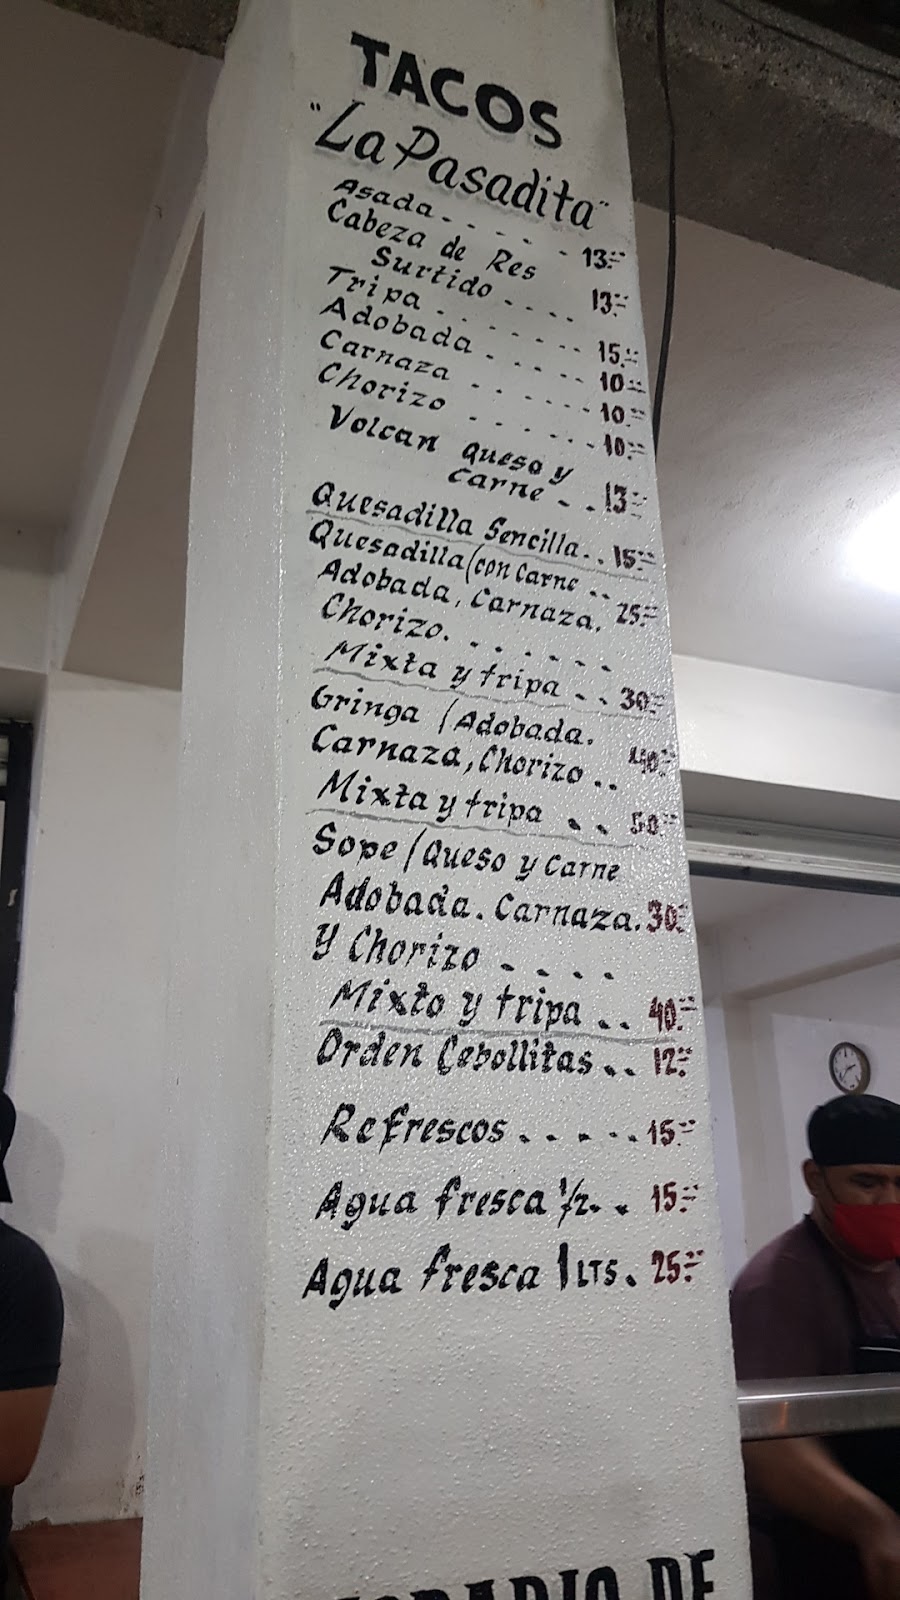 TACOS
"La Pasadita"
Asada. - - - - - 13.=
Cabeza de Res
Surtido - - - - 13.=
Tripa - - - - - - 15.=
Adobada - - - - - 10.=
Carnaza - - - - - - 10.=
Chorizo - - - - - - 10.=
Volcan queso y
carne - - 13.=
Quesadilla Sencilla. . 15.=
Quesadilla (con Carne .. 25.=
Adobada, Carnaza.
Chorizo. - - - - - -
Mixta y tripa - - . 30.=
Gringa / Adobada.
Carnaza, Chorizo .. 40.=
Mixta y tripa . . 50.=
Sope / Queso y Carne
Adobada. Carnaza. 30.=
Y Chorizo - - - -
Mixto y tripa .. 40.=
Orden Cebollitas . . 12.=
Refrescos . - - - . 15.=
Agua fresca 1/2. . 15.=
Agua fresca 1 LTS . 25.=
HORARIO DE